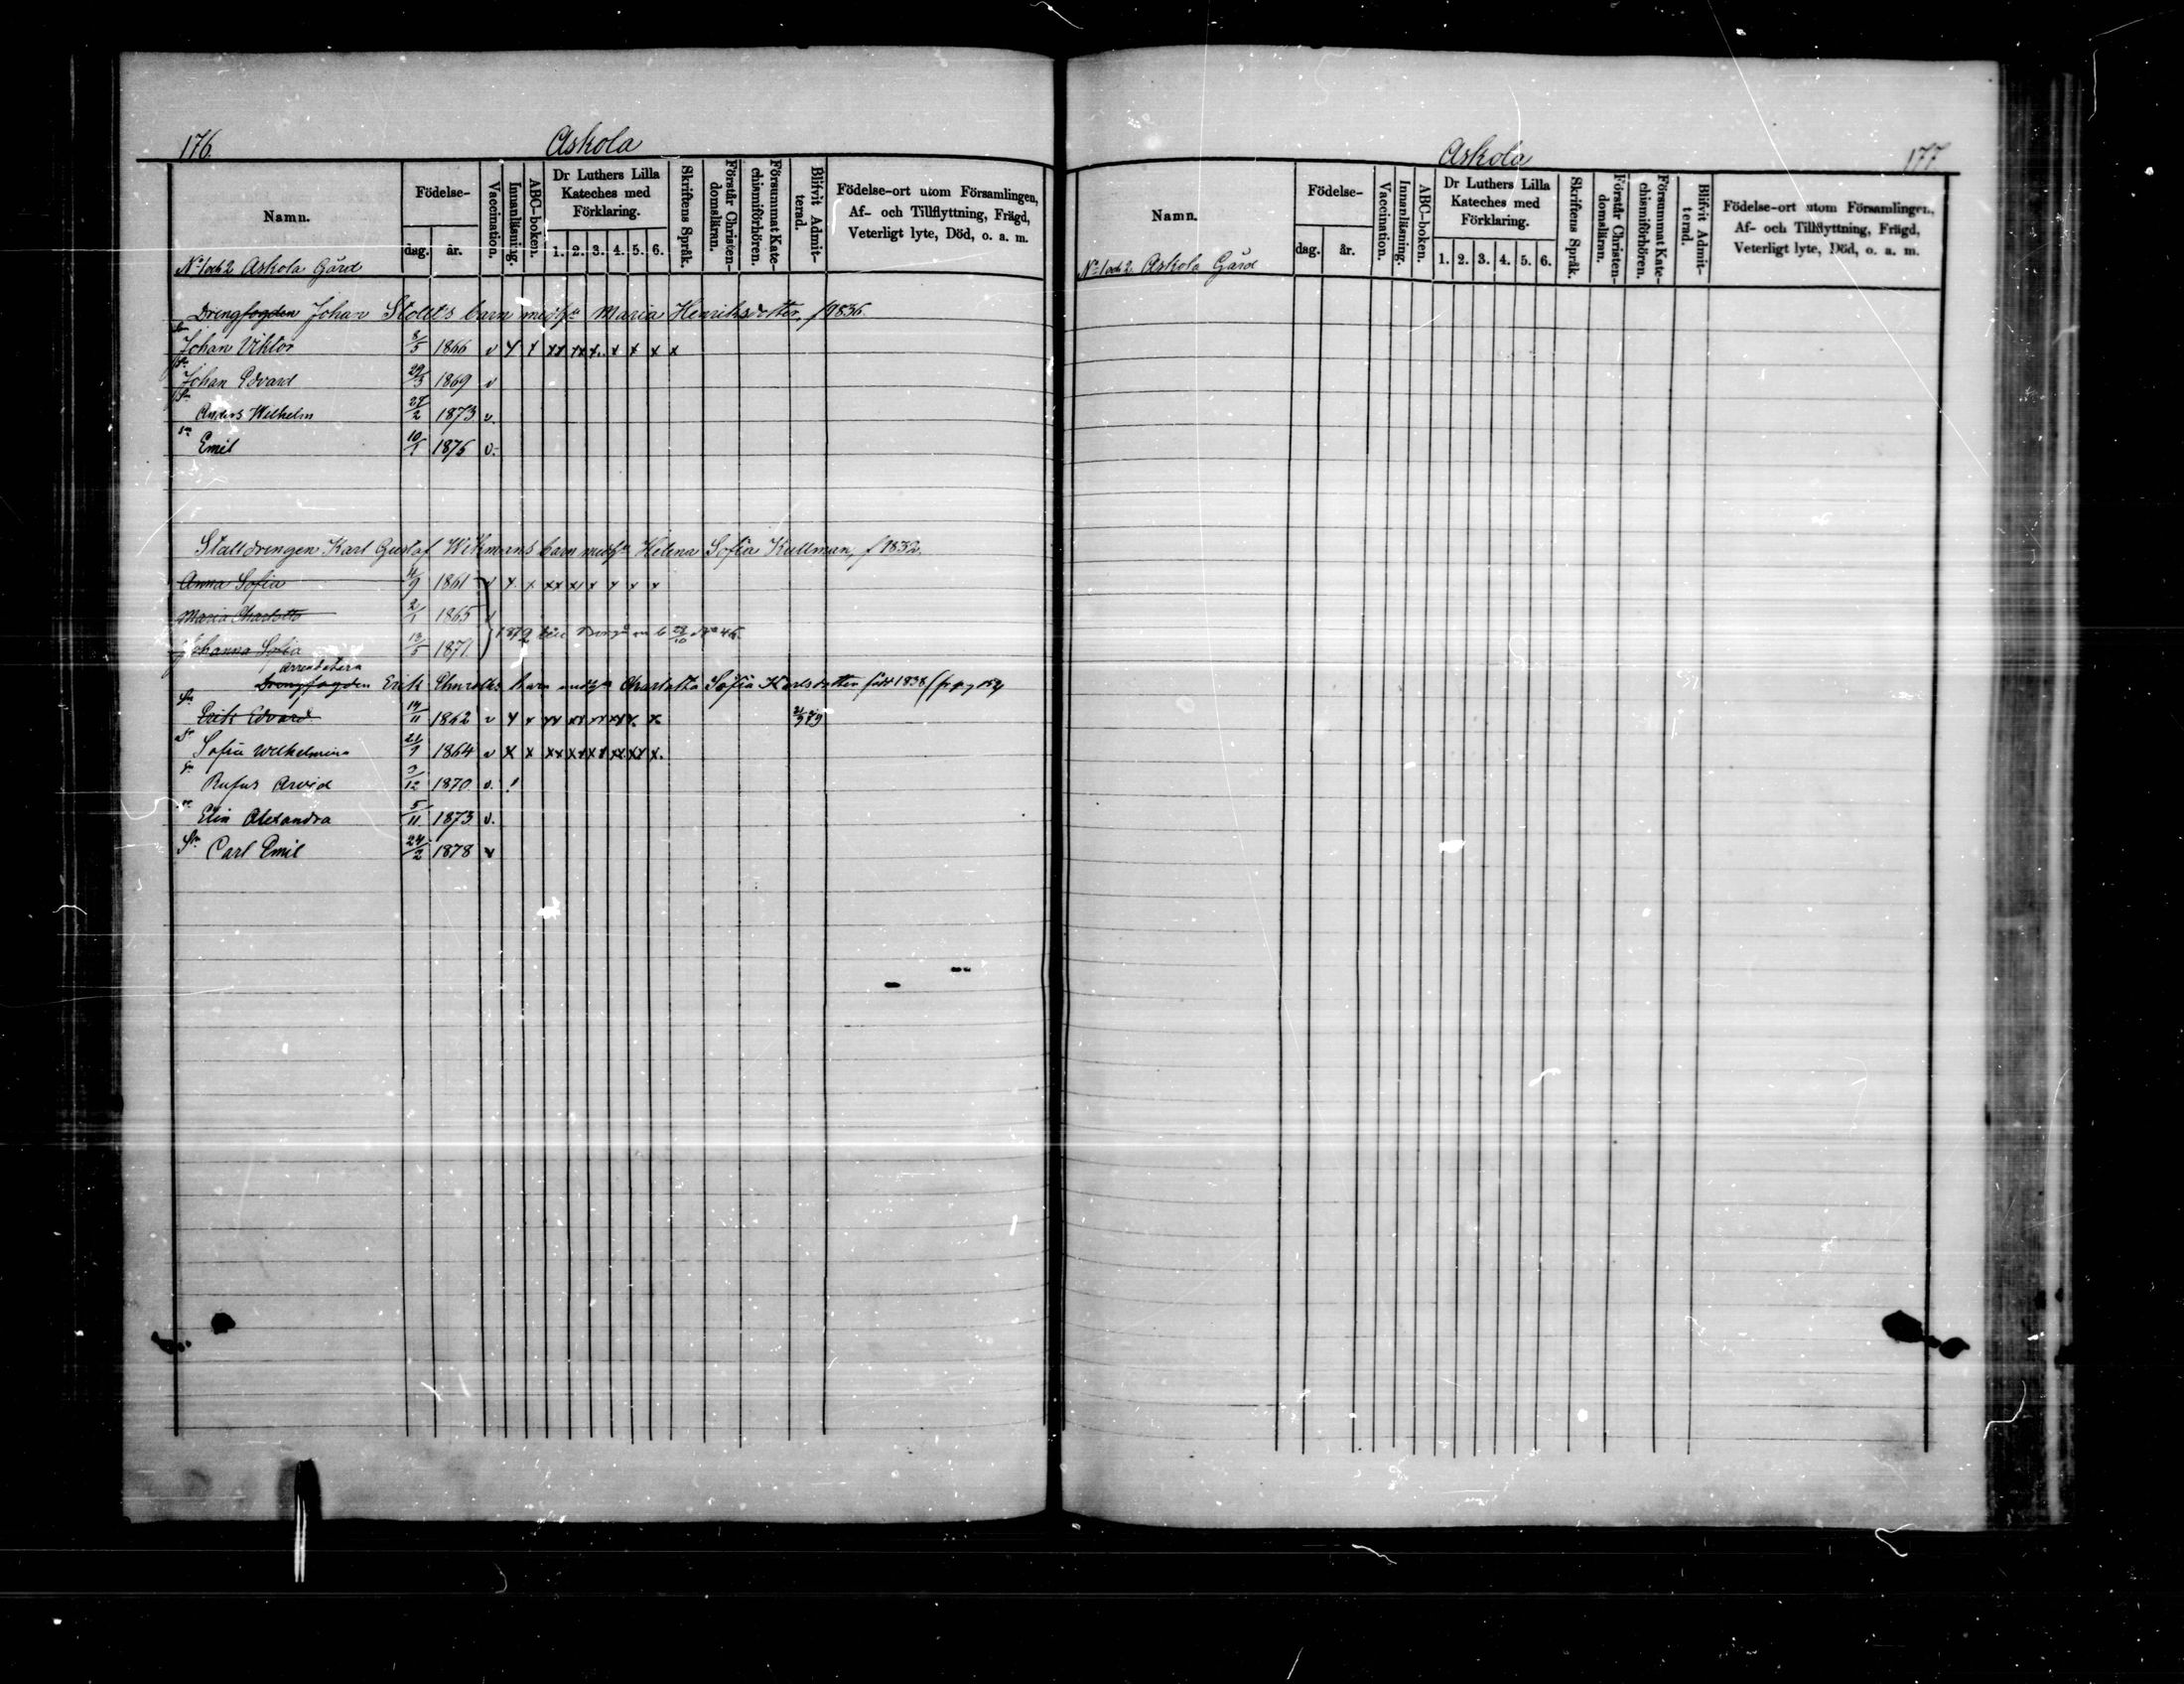 176.
Askola
Namn.
Födelse-
dag.
år.
Vaccination.
Innanläsning.
ABC-boken.
Dr Luthers Lilla
Kateches med
Förklaring.
1. 2. 3. 4. 5. 6.
Skriftens Språk.
Förstår Christen-
domsläran.
Försummat Kate-
chismiförhören.
Blifvit Admit-
terad.
Födelse-ort utom Församlingen,
Af- och Tillflyttning, Frägd,
Veterligt lyte, Död, o. a. m.
No 1 och 2 Askola Gård
Drengfogden Johan Stolt's barn med h. Maria Henriksdotter, f 1836.
Johan Viktor 8/5 1866 v x x xx xx x. x x x x
Johan Edvard 29/3 1869 v
Anders Wilhelm 28/2 1873 v.
Emil 10/1 1876 v.
Stalldrengen Karl Gustaf Wikmans barn med h. Helena Sofia Kullman, f 1832.
Anna Sofia 11/9 1861 v x x xx xx x x x x
Maria Charlotta 2/1 1865 v
Johanna Sofia 13/5 1871.
1879 till Borgå
Arrendatorn
Drengfogden Erik barn med Charlotta Sofia Karlsdotter född 1838
Erik Edvard 14/11 1862 v x x xx xx xx xx x. x. 21/9 79
Sofia Wilhelmina 21/9 1864 v x x xx xx xx xx xx x.
Rufus Arvid 9/12 1870 v. !
Elin Alexandra 5/11 1873 v.
Carl Emil 24/2 1878 v
Askola
177
Namn.
Födelse-
dag.
år.
Vaccination.
Innanläsning.
ABC-boken.
Dr Luthers Lilla
Kateches med
Förklaring.
1. 2. 3. 4. 5. 6.
Skriftens Språk.
Förstår Christen-
domsläran.
Försummat Kate-
chismiförhören.
Blifvit Admit-
terad.
Födelse-ort utom Församlingen,
Af- och Tillflyttning, Frägd,
Veterligt lyte, Död, o. a. m.
No 1 och 2 Askola Gård